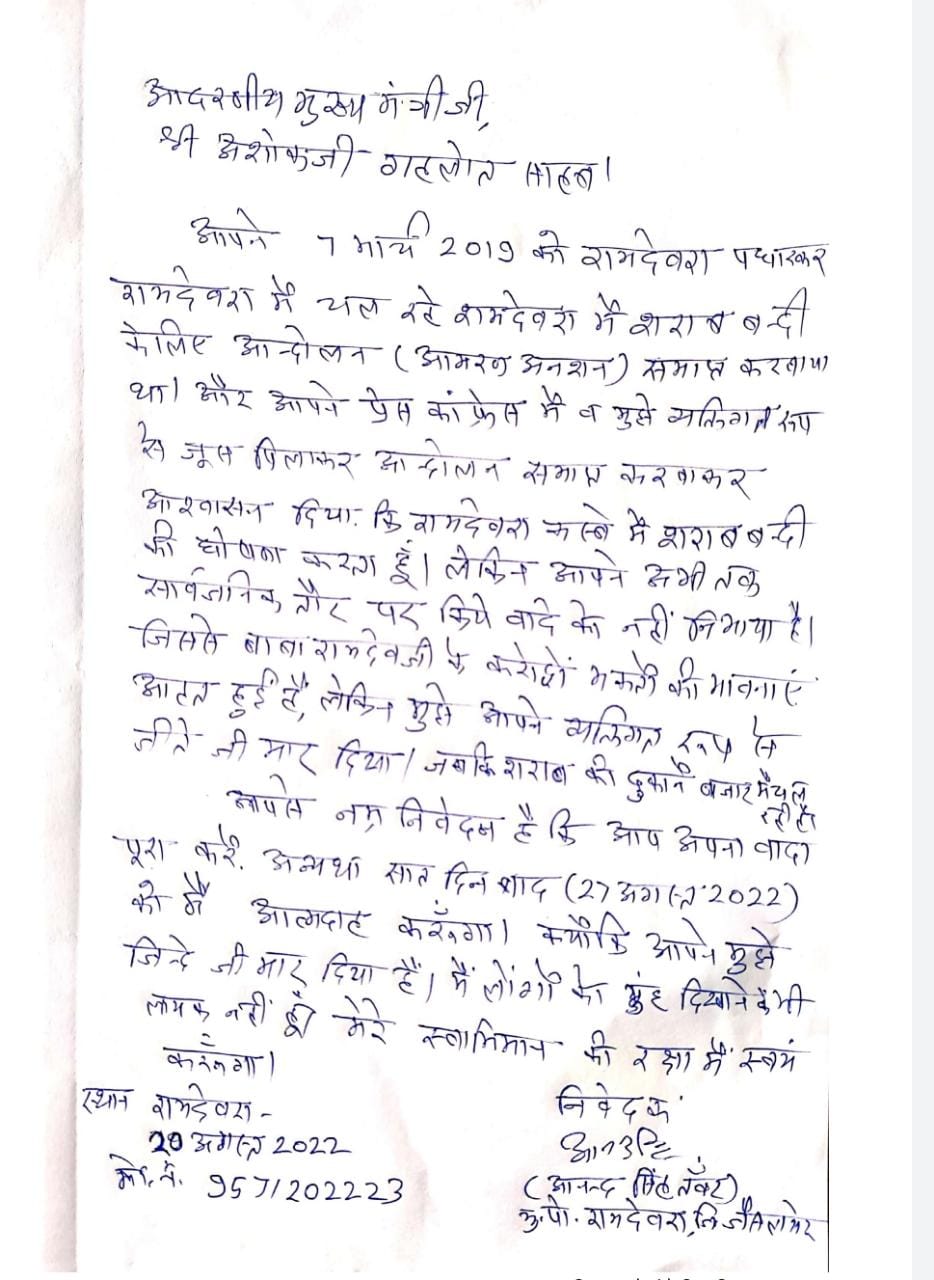 आदरणीय मुख्य मंत्रीजी,
श्री अशोकजी गहलोत साहब।
आपने 7 मार्च 2019 को रामदेवरा पधारकर
रामदेवरा मैं चल रहे रामदेवरा मैं शराब बन्दी
के लिए आन्दोलन (आमरण अनशन) समाप्त करवाया
था। और आपने प्रेस कांफ्रेस मैं व मुझे व्यक्तिगत रूप
से जूस पिलाकर आन्दोलन समाप्त करवाकर
आश्वासन दिया. कि रामदेवरा कस्बे मैं शराब बन्दी
की घोषणा करता हूँ। लेकिन आपने अभी तक
सार्वजनिक तौर पर किये वादे को नहीं निभाया है।
जिससे बाबा रामदेवजी के करोड़ों भक्तों की भावनाएं
आहत हुई हैं, लेकिन मुझे आपने व्यक्तिगत रूप से
जीते जी मार दिया। जबकि शराब की दुकानें बाजार मैं चल
रही हैं।
आपसे नम्र निवेदन है कि आप अपना वादा
पूरा करें. अन्यथा सात दिन बाद (27 अगस्त 2022)
को मैं आत्मदाह करूँगा। क्योंकि आपने मुझे
जिन्दे जी मार दिया हैं। मैं लोंगों को मुंह दिखाने के भी
लायक नहीं हूँ। मेरे स्वाभिमान की रक्षा मैं स्वयं
करूंगा।
स्थान रामदेवरा- निवेदक
20 अगस्त 2022
मो. नं. 9571202223 (आनन्द सिंह तँवर)
मु. पो. रामदेवरा, जि जैसलमेर